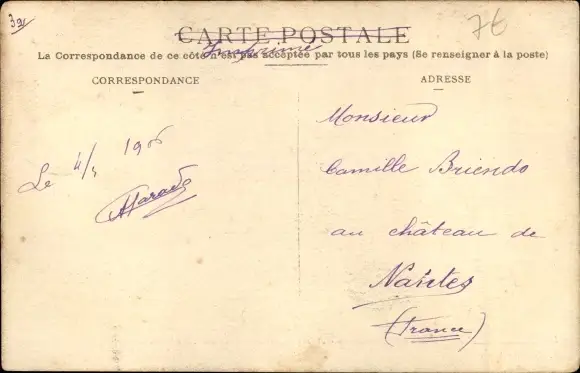 39
7€
CARTE POSTALE
Imprimé
La Correspondance de ce côté n'est pas acceptée par tous les pays (Se renseigner à la poste)
CORRESPONDANCE
ADRESSE
Le 4/5 1906
Monsieur
Camille Briendo
au château de
Nantes
(France)